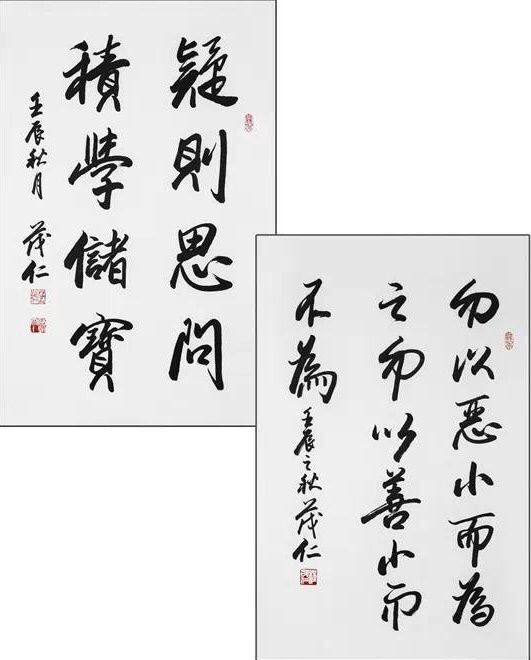 疑則思問
積學儲寶
壬辰秋月 茂仁
勿以惡小而為
之勿以善小而
不為
壬辰之秋茂仁